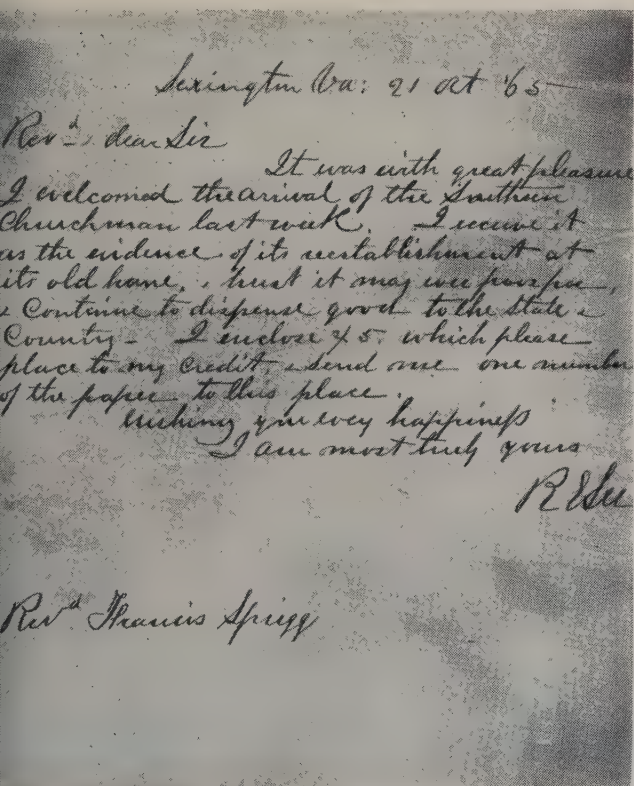 Lexington Va: 21 Oct '65
Revd. dear Sir
It was with great pleasure
I welcomed the arrival of the Southern
Churchman last week. I receive it
as the evidence of its reestablishment at
its old home. & trust it may ever prosper,
& Continue to dispense good to the State &
Country - I enclose $5. which please
place to my credit & send me one number
of the paper to this place.
Wishing you every happiness
I am most truly yours
R E Lee
Revd Francis Sprigg